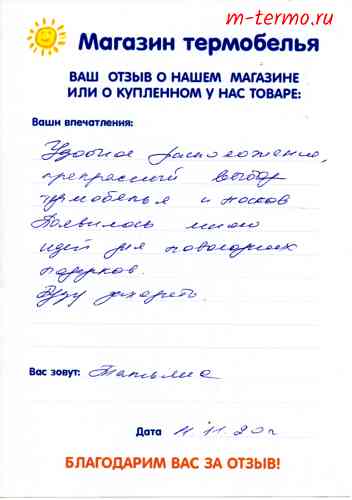 m-termo.ru
Магазин термобелья
ВАШ ОТЗЫВ О НАШЕМ МАГАЗИНЕ
ИЛИ О КУПЛЕННОМ У НАС ТОВАРЕ:
Ваши впечатления:
Удобное расположение,
прекрасный выбор
термобелья и носков
Появилось много
идей для новогодних
подарков.
Буду заходить.
Вас зовут: Татьяна
Дата 11 11 20г
БЛАГОДАРИМ ВАС ЗА ОТЗЫВ!